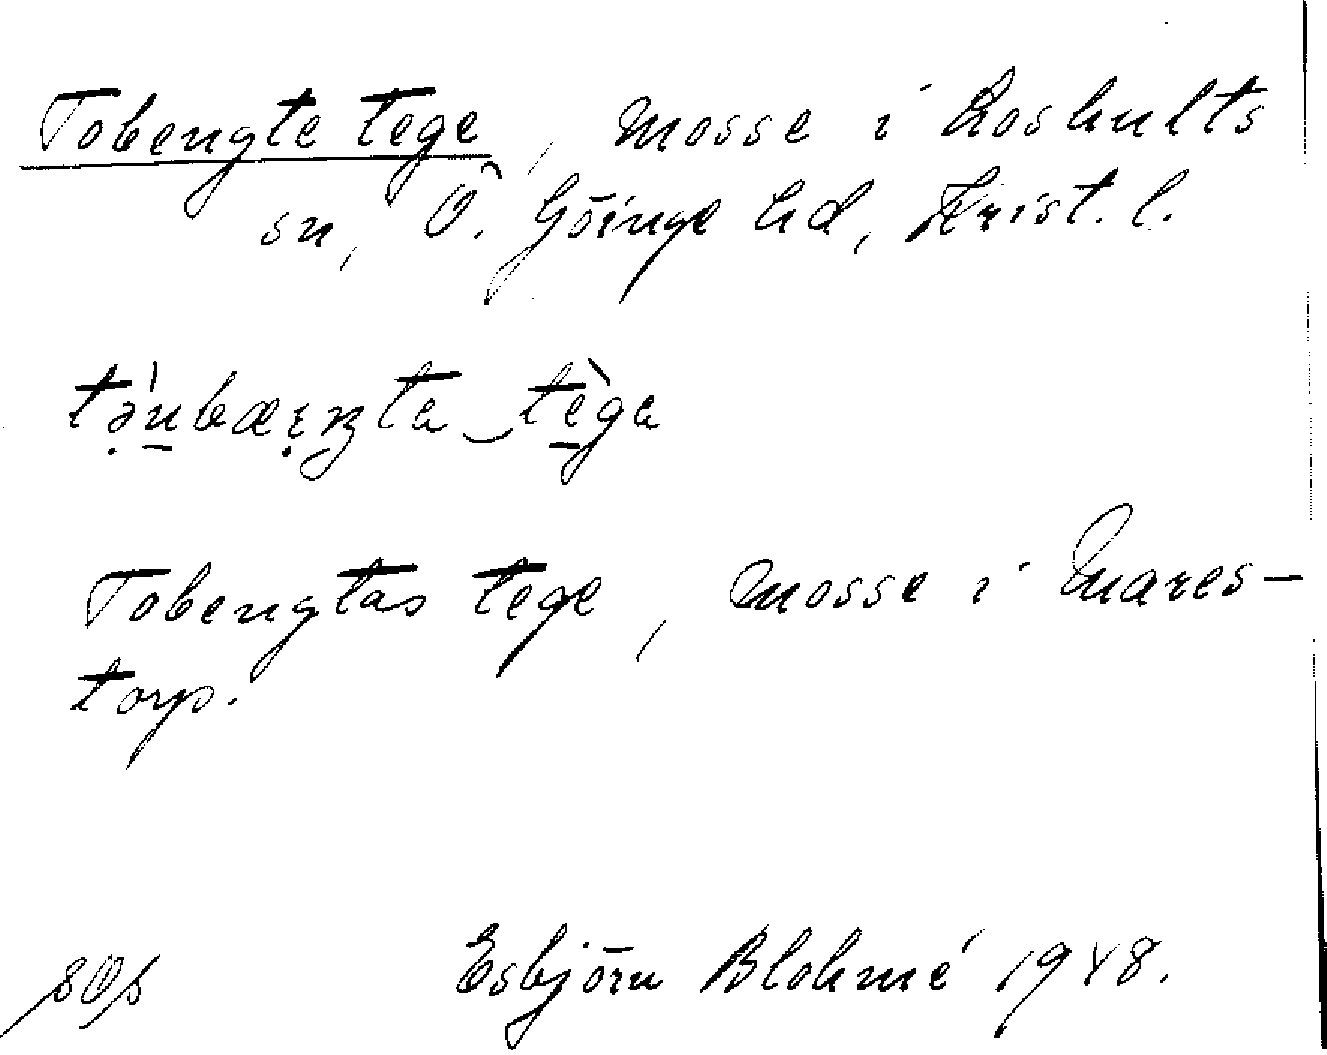 Tobengte tege, mosse i Loshults
sn, Ö. Göinge hd, Krist. l.
Tobengtas tege, mosse i Enares-
torp.
Esbjörn Blohmé 1948.